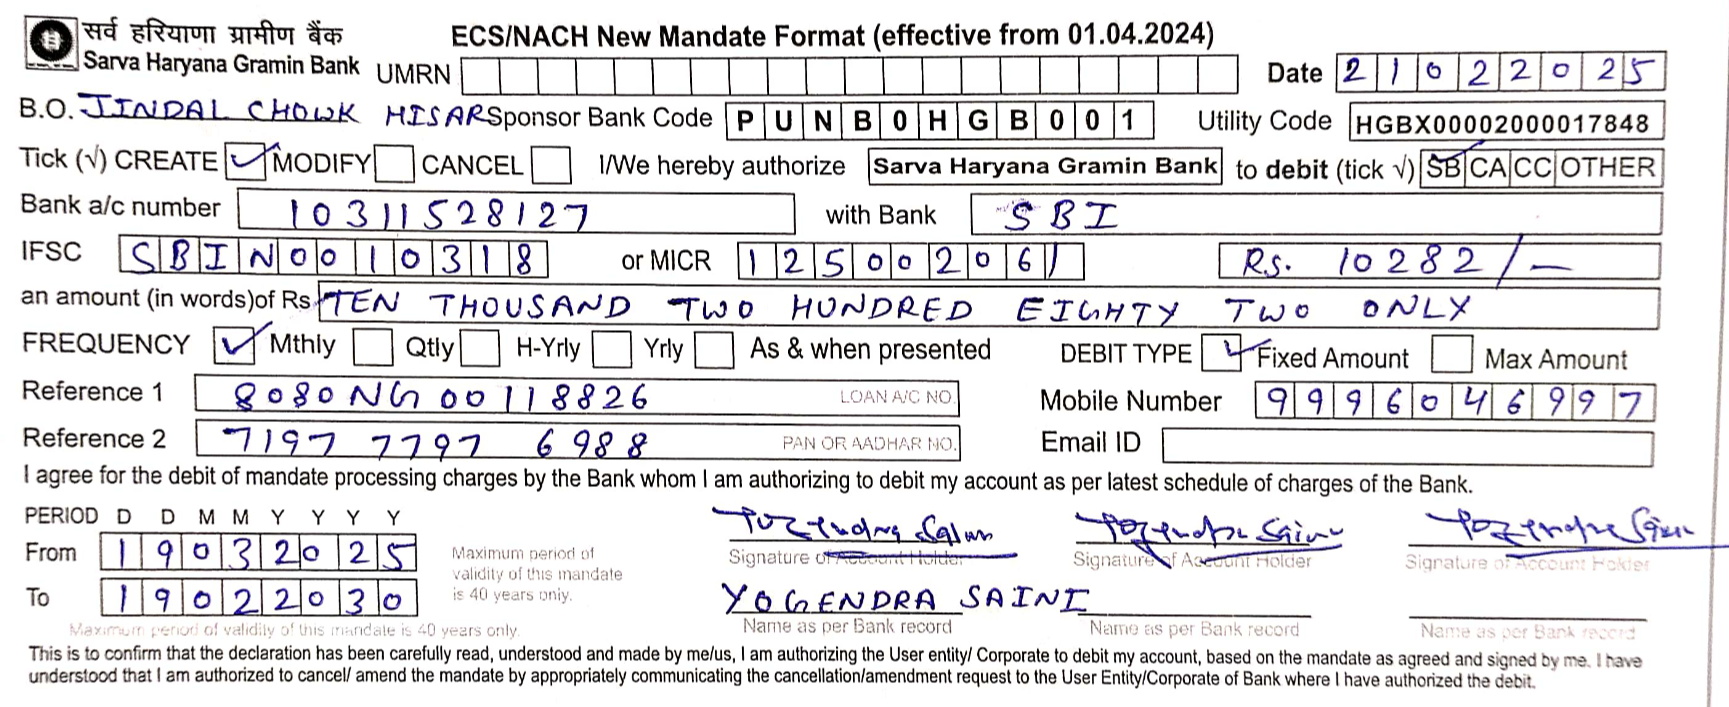 सर्व हरियाणा ग्रामीण बैंक
Sarva Haryana Gramin Bank
ECS/NACH New Mandate Format (effective from 01.04.2024)
UMRN Date 21022025
B.O. JINDAL CHOWK HISAR Sponsor Bank Code PUNB0HGB001 Utility Code HGBX00002000017848
Tick (√) CREATE ✓ MODIFY CANCEL I/We hereby authorize Sarva Haryana Gramin Bank to debit (tick √) SB CA CC OTHER
Bank a/c number 10311528127 with Bank SBI
IFSC SBIN0010318 or MICR 125002061 Rs. 10282/-
an amount (in words)of Rs TEN THOUSAND TWO HUNDRED EIGHTY TWO ONLY
FREQUENCY ✓ Mthly Qtly H-Yrly Yrly As & when presented DEBIT TYPE ✓ Fixed Amount Max Amount
Reference 1 8080NG00118826 LOAN A/C NO. Mobile Number 9996046997
Reference 2 7197 7797 6988 PAN OR AADHAR NO. Email ID
I agree for the debit of mandate processing charges by the Bank whom I am authorizing to debit my account as per latest schedule of charges of the Bank.
PERIOD D D M M Y Y Y Y
From 19032025
To 19022030
Maximum period of
validity of this mandate
is 40 years only.
Maximum period of validity of this mandate is 40 years only.
Yogendra Saini Yogendra Saini Yogendra Saini
Signature of Account Holder Signature of Account Holder Signature of Account Holder
YOGENDRA SAINI
Name as per Bank record Name as per Bank record Name as per Bank record
This is to confirm that the declaration has been carefully read, understood and made by me/us, I am authorizing the User entity/ Corporate to debit my account, based on the mandate as agreed and signed by me. I have
understood that I am authorized to cancel/ amend the mandate by appropriately communicating the cancellation/amendment request to the User Entity/Corporate of Bank where I have authorized the debit.